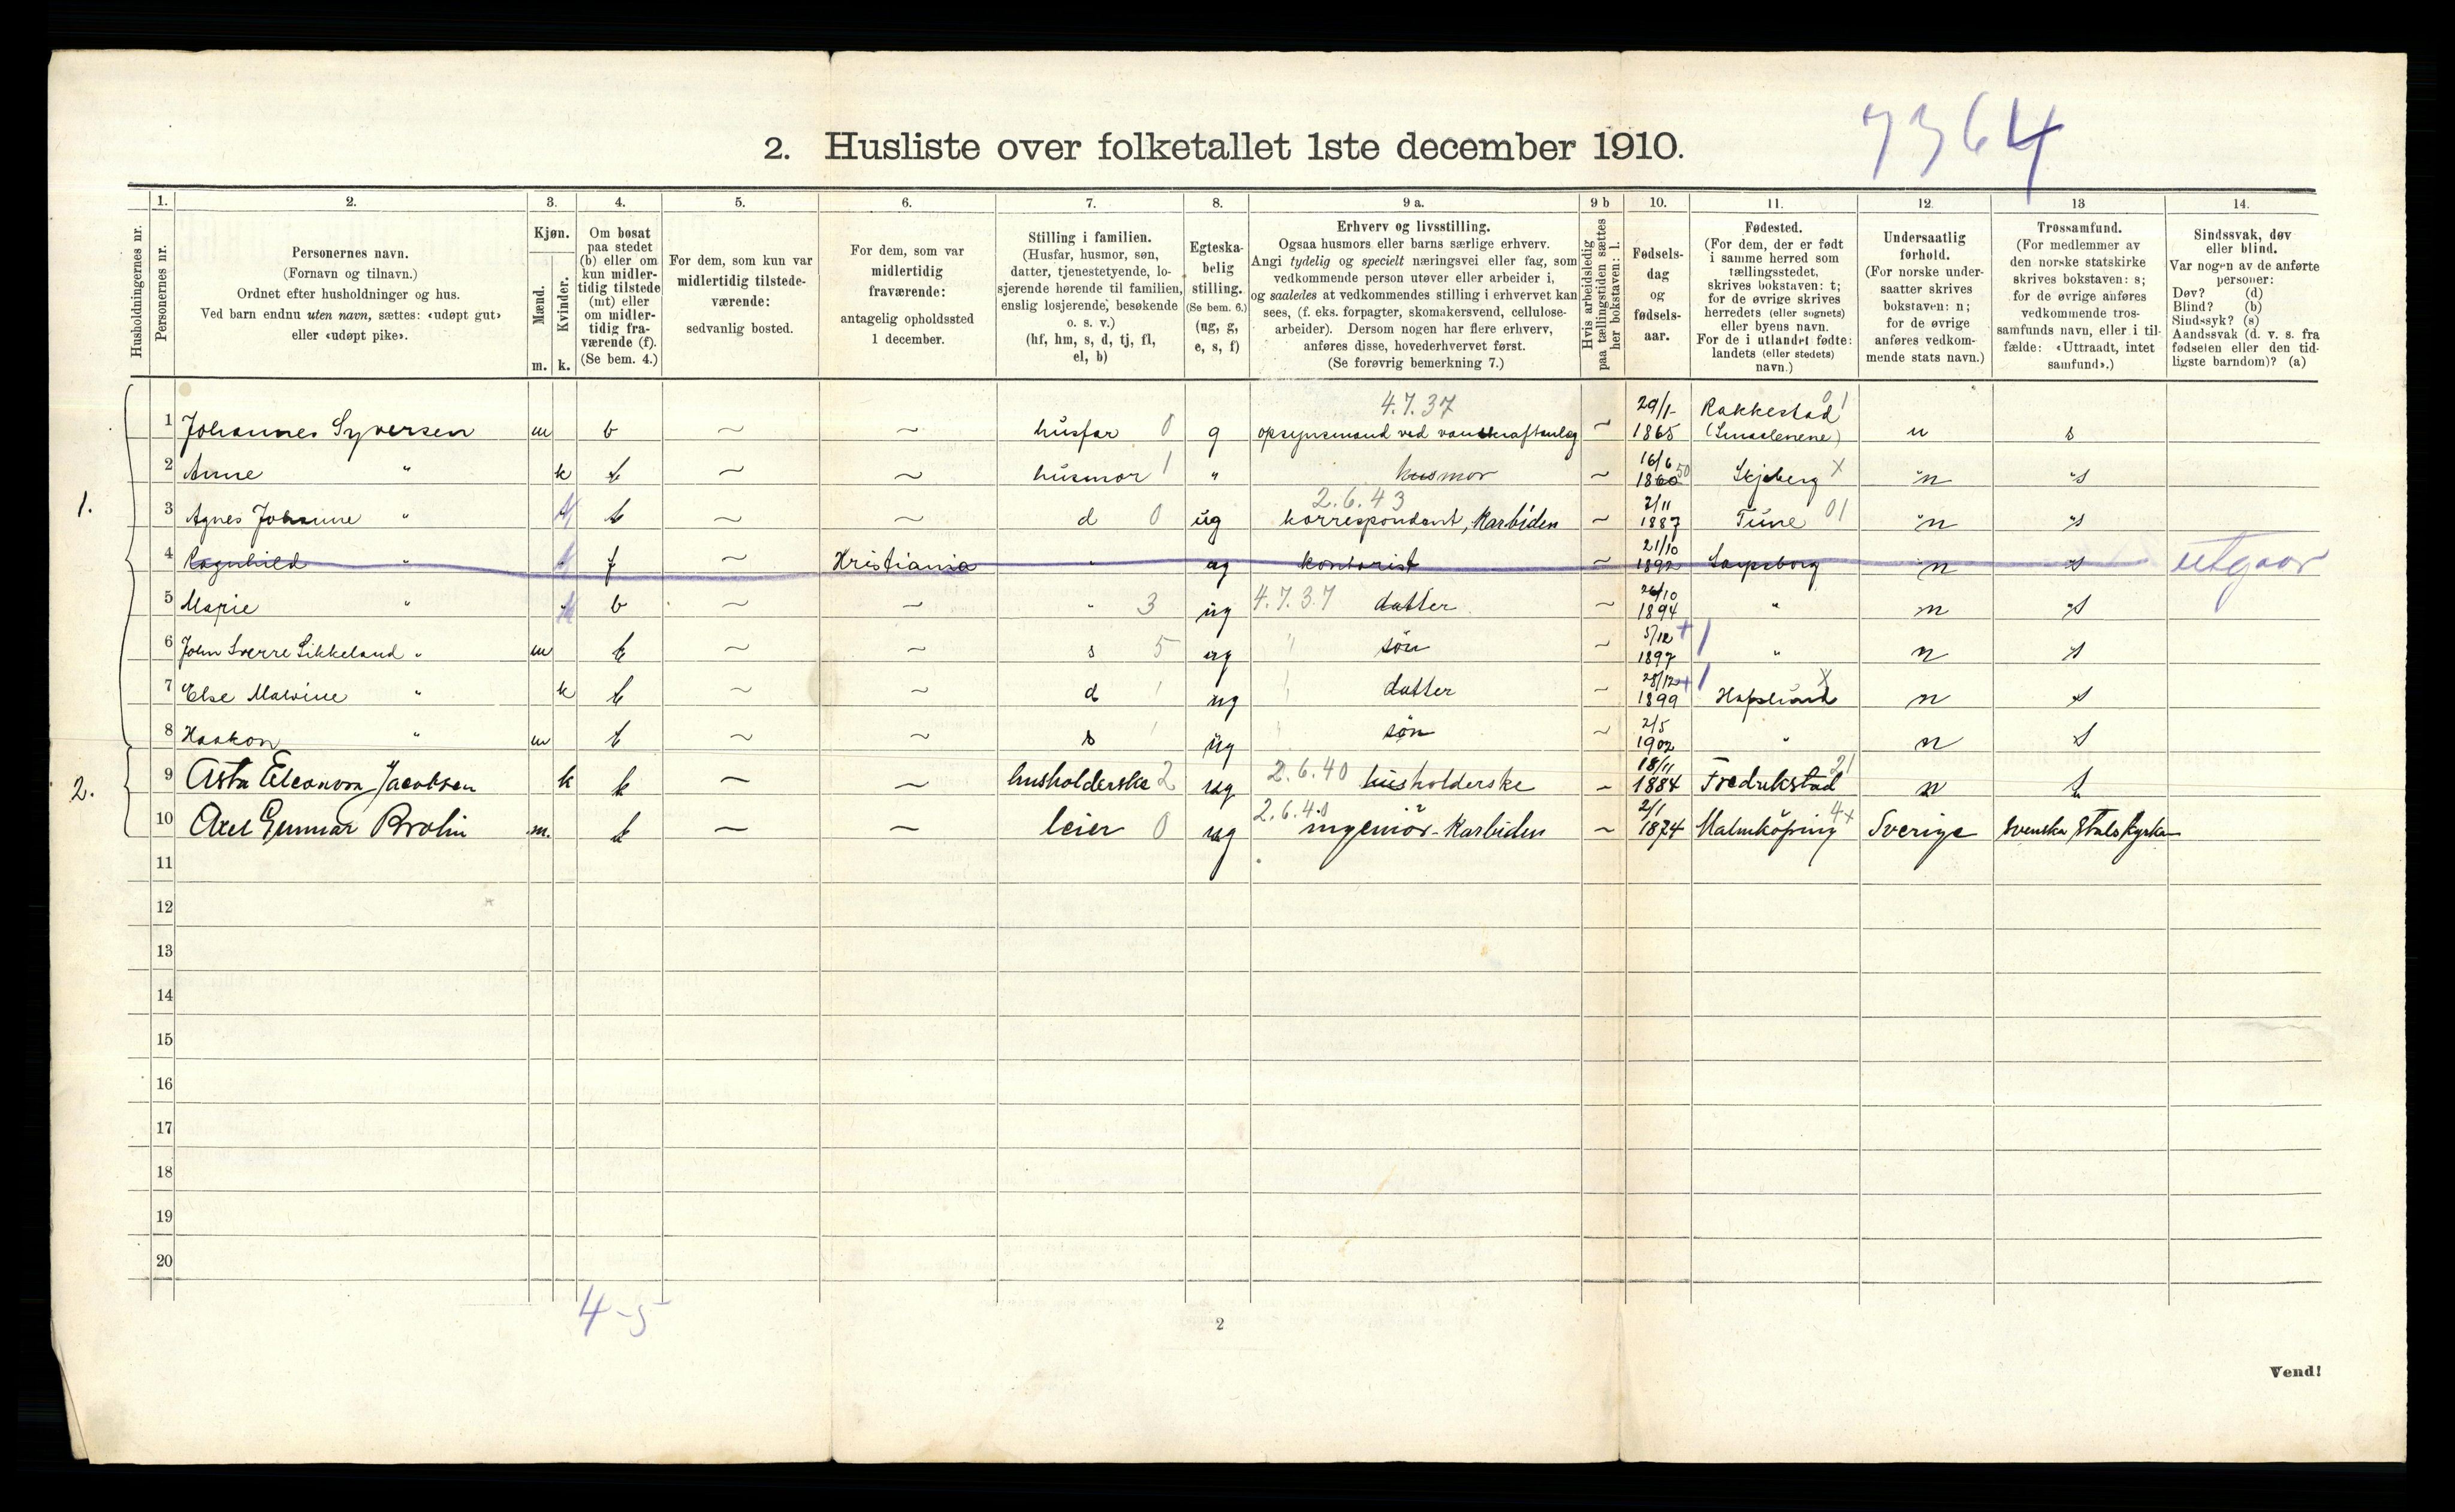 7364
2. Husliste over folketallet 1ste december 1910.
Husholdningernes nr.
1. Personernes nr.
2. Personernes navn.
(Fornavn og tilnavn.)
Ordnet efter husholdninger og hus.
Ved barn endnu uten navn, sættes: «udøpt gut»
eller «udøpt pike».
3. Kjøn.
Mænd. Kvinder.
m. k.
4. Om bosat
paa stedet
(b) eller om
kun midler-
tidig tilstede
(mt) eller
om midler-
tidig fra-
værende (f).
(Se bem. 4.)
5. For dem, som kun var
midlertidig tilstede-
værende:
sedvanlig bosted.
6. For dem, som var
midlertidig
fraværende:
antagelig opholdssted
1 december.
7. Stilling i familien.
(Husfar, husmor, søn,
datter, tjenestetyende, lo-
sjerende hørende til familien,
enslig losjerende, besøkende
o. s. v.)
(hf, hm, s, d, tj, fl,
el, b)
8. Egteska-
belig
stilling.
(Se bem. 6.)
(ug, g,
e, s, f)
9 a. Erhverv og livsstilling.
Ogsaa husmors eller barns særlige erhverv.
Angi tydelig og specielt næringsvei eller fag, som
vedkommende person utøver eller arbeider i,
og saaledes at vedkommendes stilling i erhvervet kan
sees, (f. eks. forpagter, skomakersvend, cellulose-
arbeider). Dersom nogen har flere erhverv,
anføres disse, hovederhvervet først.
(Se forøvrig bemerkning 7.)
9 b Hvis arbeidsledig
paa tællingstiden sættes
her bokstaven: l.
10. Fødsels-
dag
og
fødsels-
aar.
11. Fødested.
(For dem, der er født
i samme herred som
tællingsstedet,
skrives bokstaven: t;
for de øvrige skrives
herredets (eller sognets)
eller byens navn.
For de i utlandet fødte:
landets (eller stedets)
navn.)
12. Undersaatlig
forhold.
(For norske under-
saatter skrives
bokstaven: n;
for de øvrige
anføres vedkom-
mende stats navn.)
13 Trossamfund.
(For medlemmer av
den norske statskirke
skrives bokstaven: s;
for de øvrige anføres
vedkommende tros-
samfunds navn, eller i til-
fælde: «Uttraadt, intet
samfund».)
14. Sindssvak, døv
eller blind.
Var nogen av de anførte
personer:
Døv? (d)
Blind? (b)
Sindssyk? (s)
Aandssvak (d. v. s. fra
fødselen eller den tid-
ligste barndom)? (a)
1.
1 Johannes Syversen m b ~ ~ husfar 0 g 4.7.37 opsynsmand ved vandkraftanlæg ~ 29/1 1865 Rakkestad (Smaalenene) 01 n s
2 Anne " k b ~ ~ husmor 1 " husmor ~ 16/6 1860 50 Skjeberg x "n "s
3 Agnes Johanne " k b ~ ~ d 0 ug 2.6.43 korrespondent, Karbiden ~ 2/11 1887 Tune 01 "n "s
4 Ragnhild " k f ~ Kristiania " ug kontorist ~ 21/10 1892 Sarpsborg "n s utgaar
5 Marie " k b ~ ~ " 3 ug 4.7.37 datter ~ 26/10 1894 " n s
6 John Sverre Likkeland " m b ~ ~ s 5 ug " søn ~ 5/12 1897 " n s
7 Else Malvine " k b ~ ~ d ug " datter ~ 28/12 1899 Hafslund x n s
8 Haakon " m b ~ ~ s ug " søn ~ 2/5 1902 " n s
2.
9 Asta Eleonora Jacobsen k b ~ ~ husholderske 2 ug 2.6.40 husholderske ~ 18/11 1884 Fredrikstad 21 n s
10 Axel Gunnar Brolin m. b ~ ~ leier 0 ug 2.6.40 ingeniör - Karbiden ~ 2/1 1874 Malmköping 4x Sverige Svenska Statskyrkan
11
12
13
14
15
16
17
18
19
20
4-5
2
Vend!